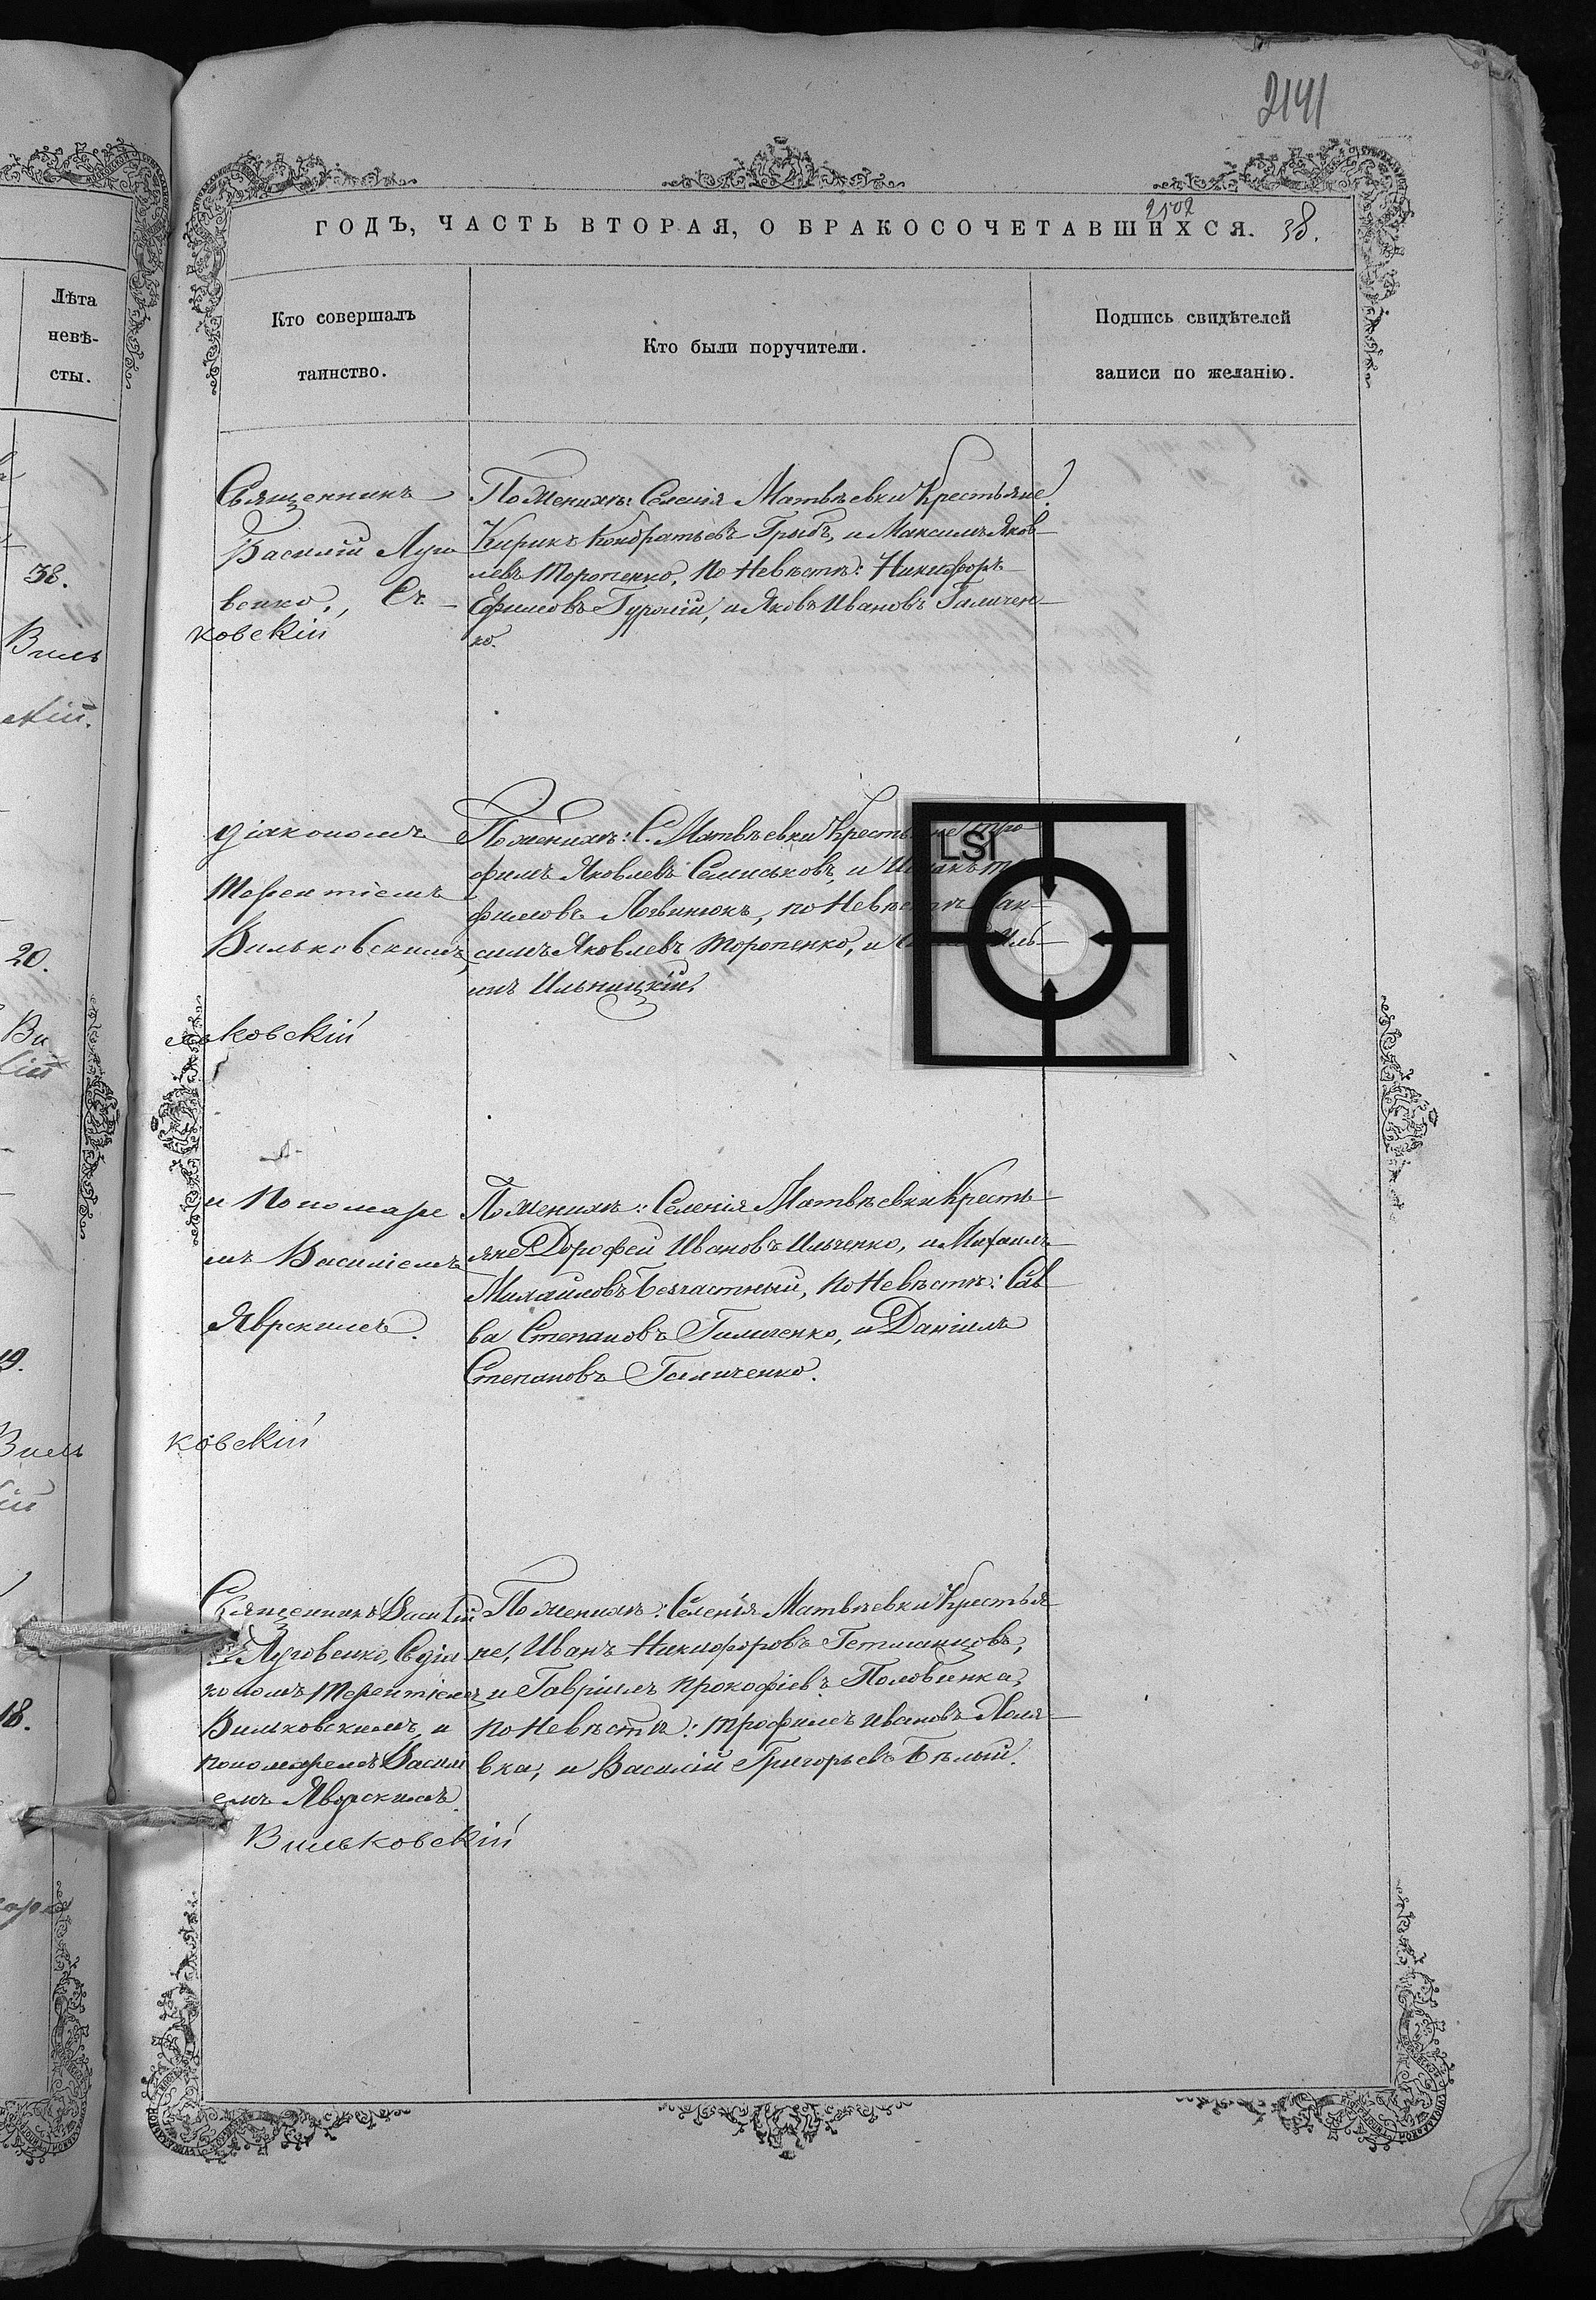 2141
2502
ГОДЪ, ЧАСТЬ ВТОРАЯ, О БРАКОСОЧЕТАВШИХСЯ. 38.
Лѣта
невѣ-
сты.
Кто совершалъ
таинство.
Кто были поручители.
Подпись свидѣтелей
записи по желанію.
38.
Виль
20.
19.
Виль
18.
Священникъ
Василій Луго
венко, Съ
ковскій
По Женихѣ: Селенія Матвѣевки Крестьяне
Кирикъ Кондратьевъ Грыбъ, и Максимъ Яков-
левъ Торопенко, По Невѣстѣ: Никифоръ
Ефимовъ Гурскій, и Яковъ Ивановъ Галичен-
ко.
діакономъ
Терентіемъ
Вильковскимъ,
льковскій
По женихѣ: С. Матвѣевки Крестьяне Тро-
фимъ Яковлевъ Семиськовъ, и
фимовъ Логвинюкъ, по Невѣстѣ Мак-
симъ Яковлевъ Торопенко, и Иль-
инъ Ильницкій.
LSI
и Пономаре
мъ Василіемъ
Яврскимъ.
ковскій
По Женихѣ: Селенія Матвѣевки Кресть-
яне Дорофей Ивановъ Ильченко, и Михаилъ
Михайловъ Безчастный, по Невѣстѣ: Сав-
ва Степановъ Галиченко, и Даніилъ
Степановъ Галиченко.
Священникъ Василій
Луговенко, Съ діа-
кономъ Терентіемъ
Вильковскимъ, и
пономаремъ Васили
емъ Яворскимъ
Вильковскій
По женихѣ: Селенія Матвѣевки Крестья-
не, Иванъ Никифоровъ Гетманцовъ,
и Гавріилъ Прокофіевъ Половинка,
по Невѣстѣ: Трофимъ Ивановъ Поля-
вка, и Василій Григорьевъ Бѣлый.